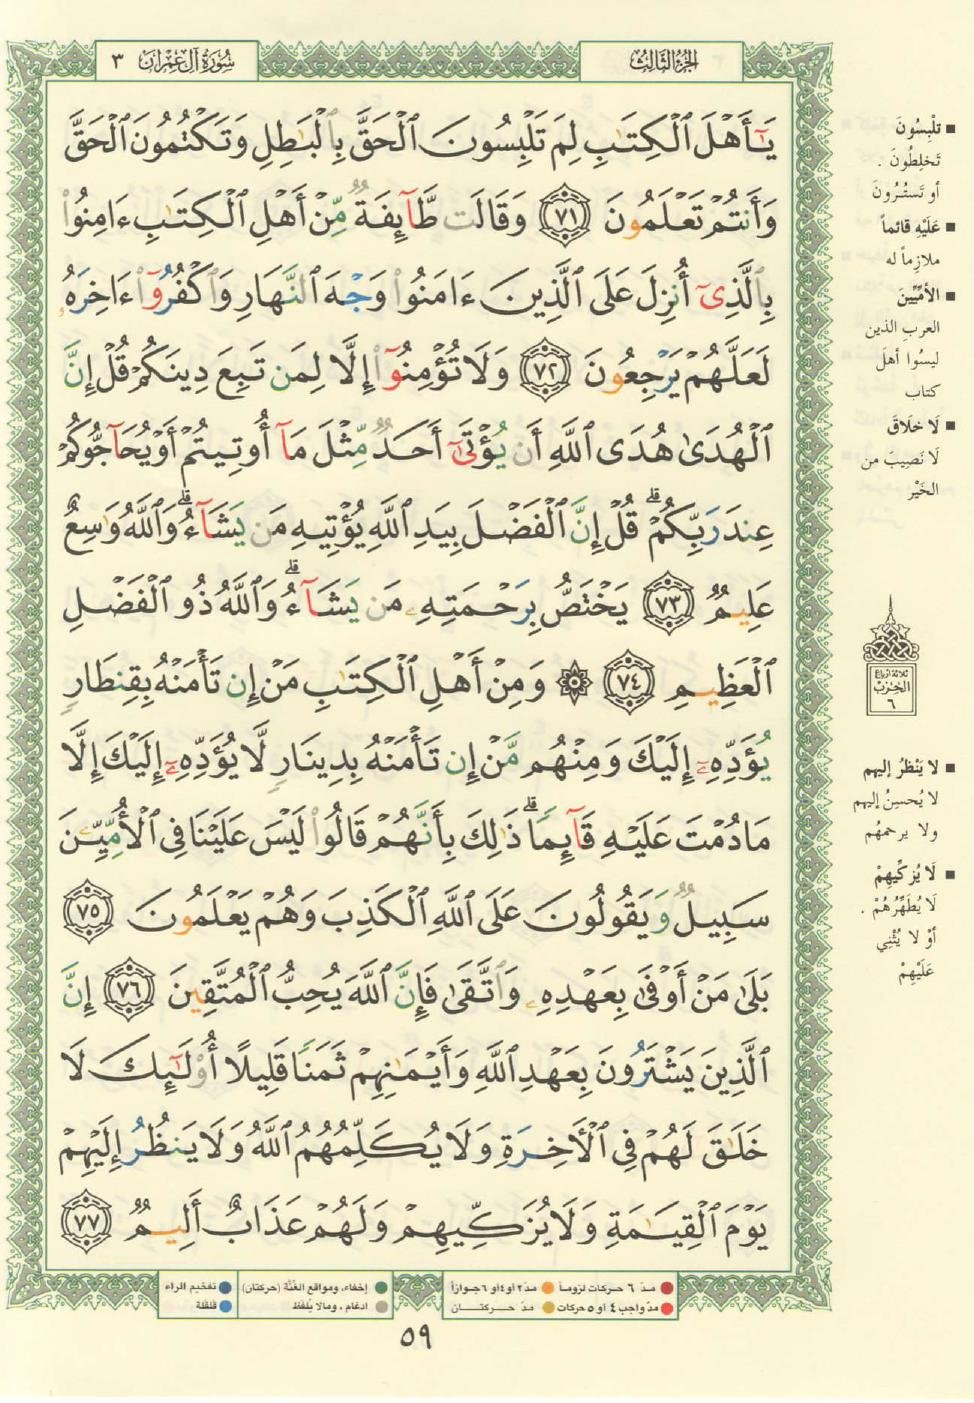 سُورَةُ آلِ عِمْرَانَ ٣
الجُزْءُ الثَّالِثُ
يَٰٓأَهْلَ ٱلْكِتَٰبِ لِمَ تَلْبِسُونَ ٱلْحَقَّ بِٱلْبَٰطِلِ وَتَكْتُمُونَ ٱلْحَقَّ
وَأَنتُمْ تَعْلَمُونَ ٧١ وَقَالَت طَّآئِفَةٌ مِّنْ أَهْلِ ٱلْكِتَٰبِ ءَامِنُوا۟
بِٱلَّذِىٓ أُنزِلَ عَلَى ٱلَّذِينَ ءَامَنُوا۟ وَجْهَ ٱلنَّهَارِ وَٱكْفُرُوٓا۟ ءَاخِرَهُۥ
لَعَلَّهُمْ يَرْجِعُونَ ٧٢ وَلَا تُؤْمِنُوٓا۟ إِلَّا لِمَن تَبِعَ دِينَكُمْ قُلْ إِنَّ
ٱلْهُدَىٰ هُدَى ٱللَّهِ أَن يُؤْتَىٰٓ أَحَدٌ مِّثْلَ مَآ أُوتِيتُمْ أَوْ يُحَآجُّوكُمْ
عِندَ رَبِّكُمْ ۗ قُلْ إِنَّ ٱلْفَضْلَ بِيَدِ ٱللَّهِ يُؤْتِيهِ مَن يَشَآءُ ۗ وَٱللَّهُ وَٰسِعٌ
عَلِيمٌ ٧٣ يَخْتَصُّ بِرَحْمَتِهِۦ مَن يَشَآءُ ۗ وَٱللَّهُ ذُو ٱلْفَضْلِ
ٱلْعَظِيمِ ٧٤ ۞ وَمِنْ أَهْلِ ٱلْكِتَٰبِ مَنْ إِن تَأْمَنْهُ بِقِنطَارٍ
يُؤَدِّهِۦٓ إِلَيْكَ وَمِنْهُم مَّنْ إِن تَأْمَنْهُ بِدِينَارٍ لَّا يُؤَدِّهِۦٓ إِلَيْكَ إِلَّا
مَا دُمْتَ عَلَيْهِ قَآئِمًا ۗ ذَٰلِكَ بِأَنَّهُمْ قَالُوا۟ لَيْسَ عَلَيْنَا فِى ٱلْأُمِّيِّۦنَ
سَبِيلٌ وَيَقُولُونَ عَلَى ٱللَّهِ ٱلْكَذِبَ وَهُمْ يَعْلَمُونَ ٧٥
بَلَىٰ مَنْ أَوْفَىٰ بِعَهْدِهِۦ وَٱتَّقَىٰ فَإِنَّ ٱللَّهَ يُحِبُّ ٱلْمُتَّقِينَ ٧٦ إِنَّ
ٱلَّذِينَ يَشْتَرُونَ بِعَهْدِ ٱللَّهِ وَأَيْمَٰنِهِمْ ثَمَنًا قَلِيلًا أُو۟لَٰٓئِكَ لَا
خَلَٰقَ لَهُمْ فِى ٱلْءَاخِرَةِ وَلَا يُكَلِّمُهُمُ ٱللَّهُ وَلَا يَنظُرُ إِلَيْهِمْ
يَوْمَ ٱلْقِيَٰمَةِ وَلَا يُزَكِّيهِمْ وَلَهُمْ عَذَابٌ أَلِيمٌ ٧٧
■ تَلْبِسُونَ
تَخلِطُونَ.
أو تَسْتُرُونَ
■ عَلَيْهِ قائماً
ملازِماً له
■ الأمِّيِّينَ
العرب الذين
ليسُوا أهلَ
كتاب
■ لَا خَلَاقَ
لَا نَصِيبَ من
الخَيْر
ثلاثة أرباع
الحِزْب
٦
■ لا يَنْظُرُ إليهم
لا يُحسِنُ إليهم
ولا يرحمُهُم
■ لَا يُزكِّيهِمْ
لَا يُطَهِّرُهُمْ.
أوْ لا يُثْنِي
عَلَيْهِمْ
مدّ ٦ حركات لزوماً مدّ ٢ أو ٤ أو ٦ جوازاً
مدّ واجب ٤ أو ٥ حركات مدّ حركتان
إخفاء، ومواقع الغُنَّة (حركتان) تفخيم الراء
ادغام، ومالا يُلفظ قلقلة
٥٩